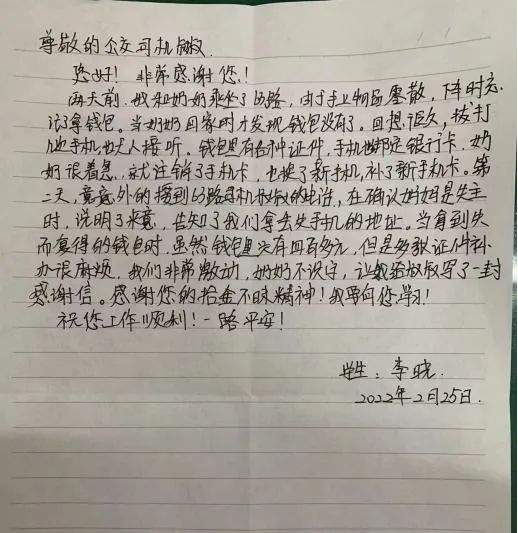 尊敬的公交司机叔叔
您好！非常感谢您！
两天前，我和奶奶乘坐了63路，由于手上物品零散，下车时忘
记了拿钱包。当奶奶回家时才发现钱包没有了。回想很久，拨打
手机也无人接听。钱包里有各种证件，手机绑定银行卡，奶
奶很着急，就注销了手机卡，也换了新手机，补了新手机卡。第
二天，竟意外的接到63路司机叔叔的电话，在确认奶奶是失主
时，说明了来意，告知了我们拿丢失手机的地址。当拿到失
而复得的钱包时，虽然钱包里只有四百多元，但是多张证件补
办很麻烦，我们非常激动，奶奶不识字，让我给叔叔写了一封
感谢信。感谢您的拾金不昧精神！我要向您学习！
祝您工作顺利！一路平安！
学生：李晓
2022年2月25日.